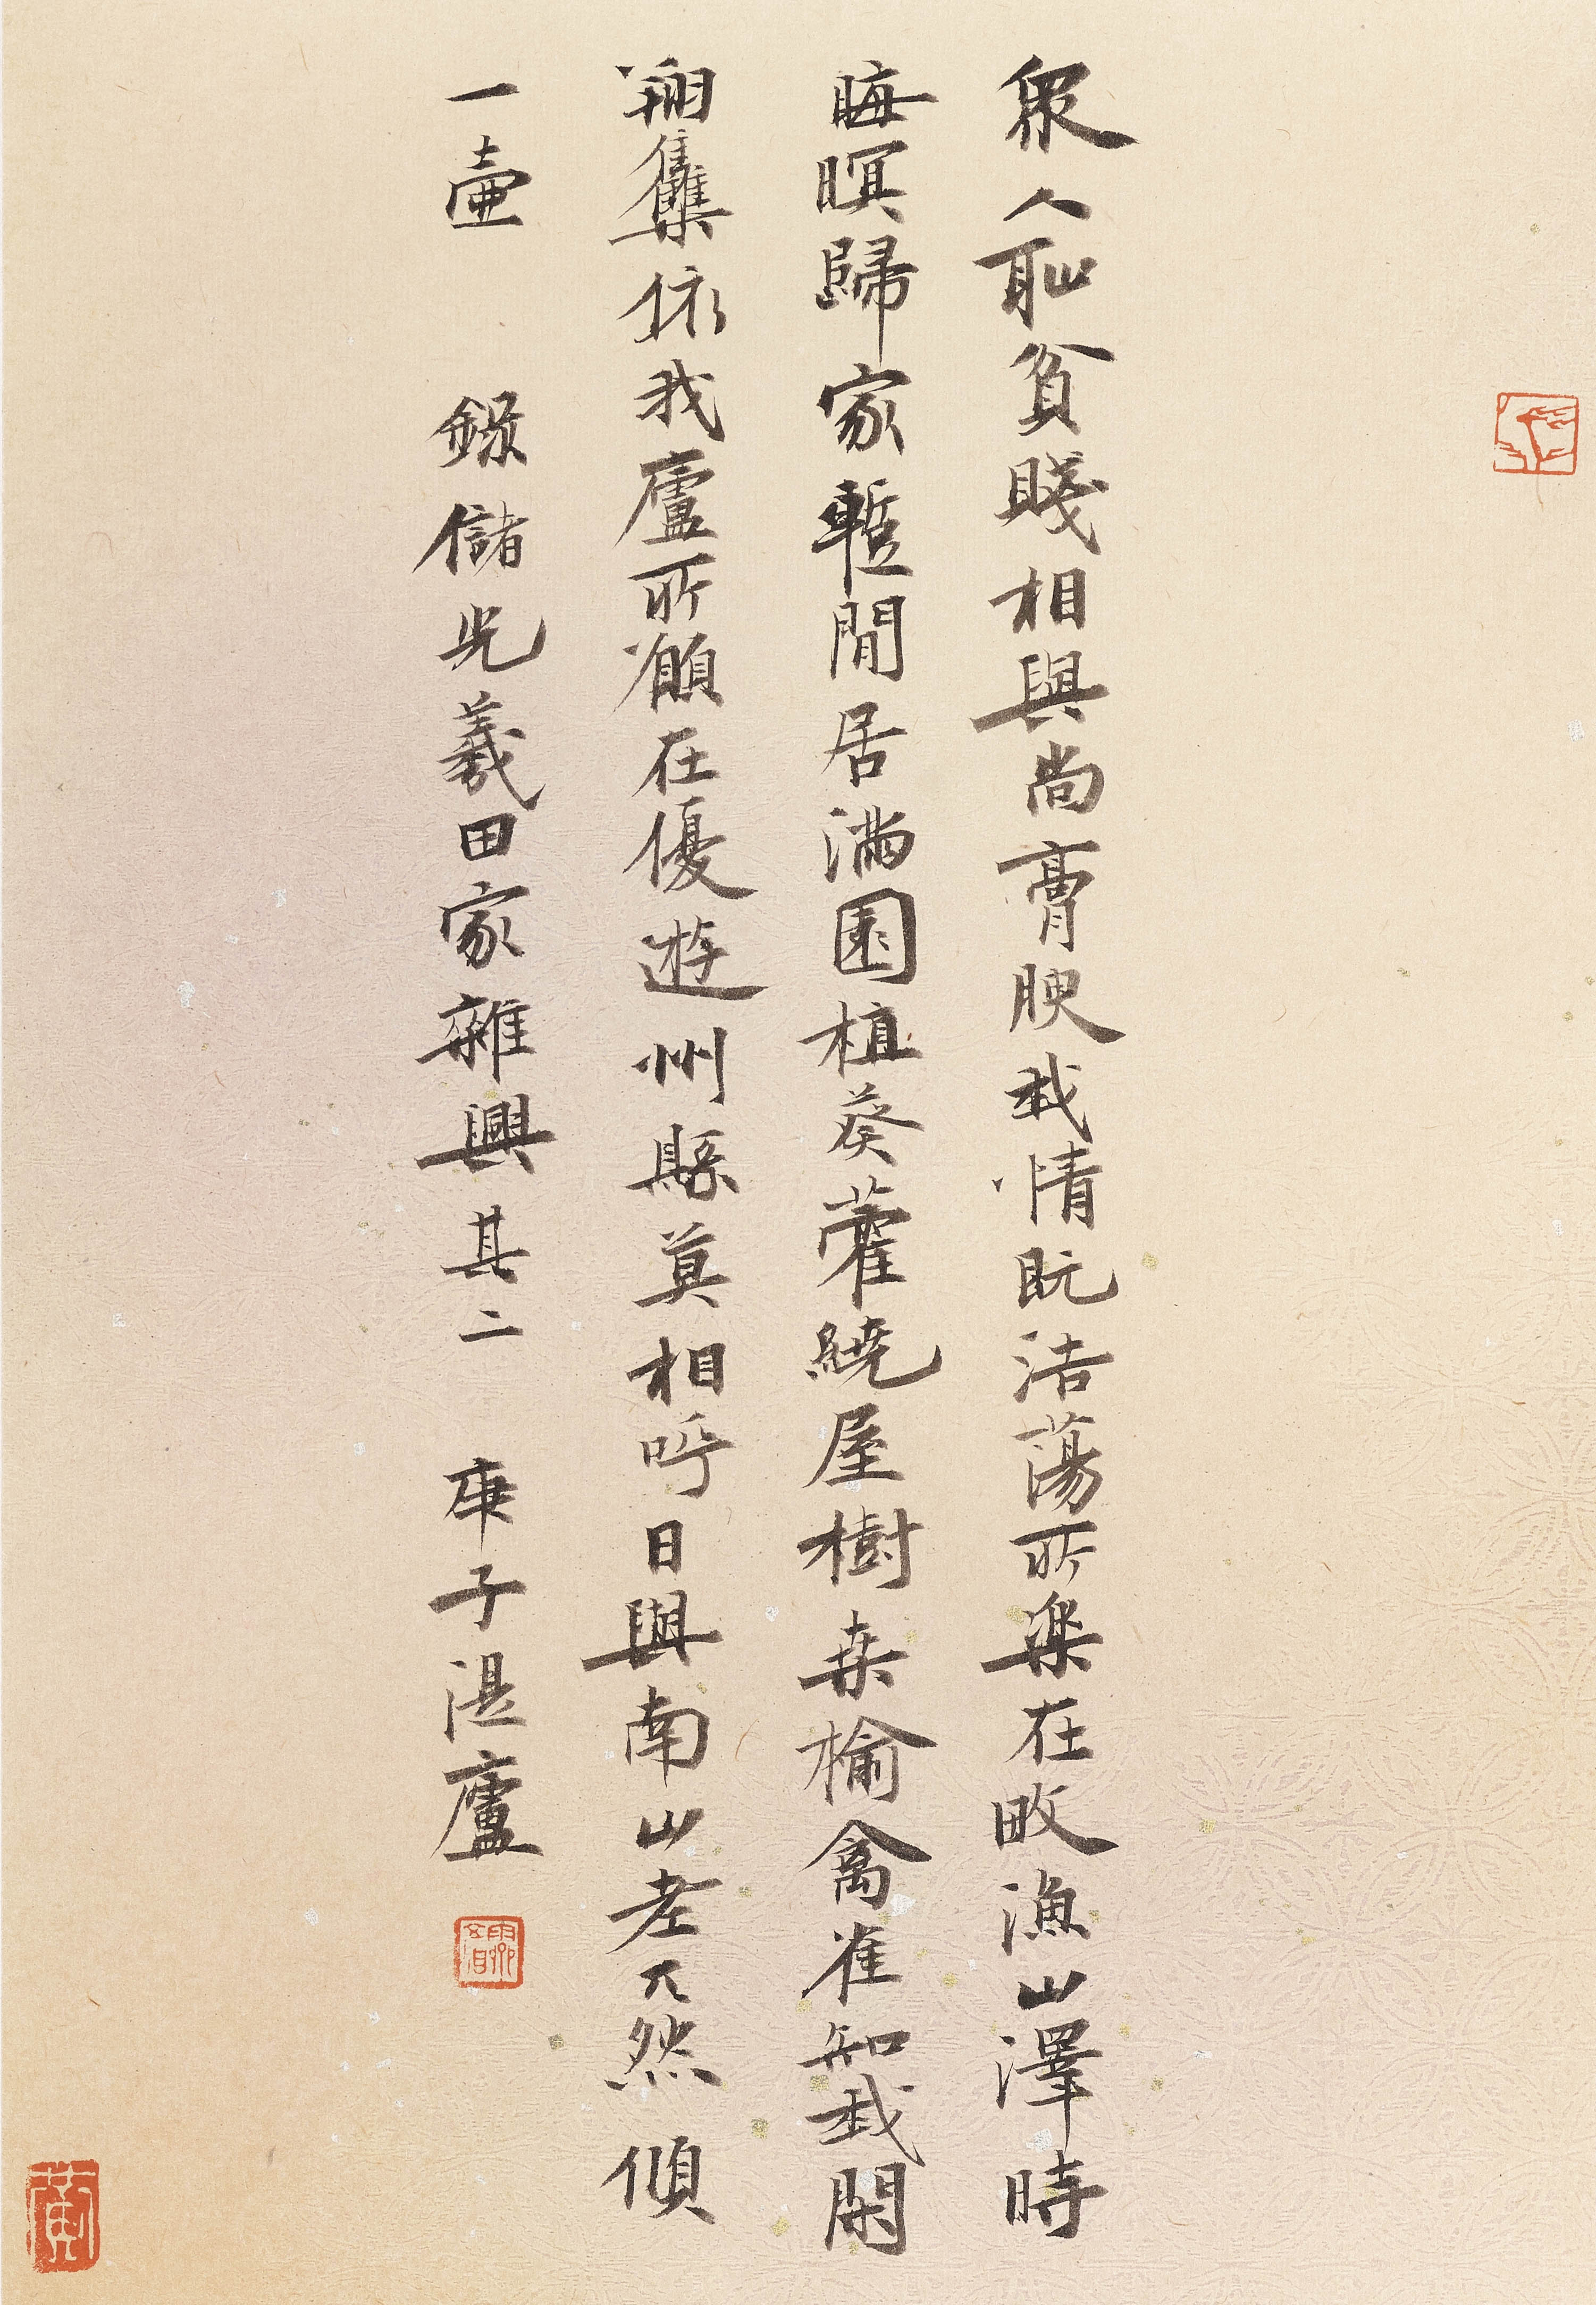 眾人耻貧賤相與尚膏腴我情既浩蕩所樂在畋漁山澤時
晦暝歸家暫閒居滿園植葵藿繞屋樹桑榆禽雀知我閑
翔雧依我廬所願在優遊州縣莫相呼日與南山老兀然傾
一壺 錄儲光羲田家雜興其二 庚子湛廬